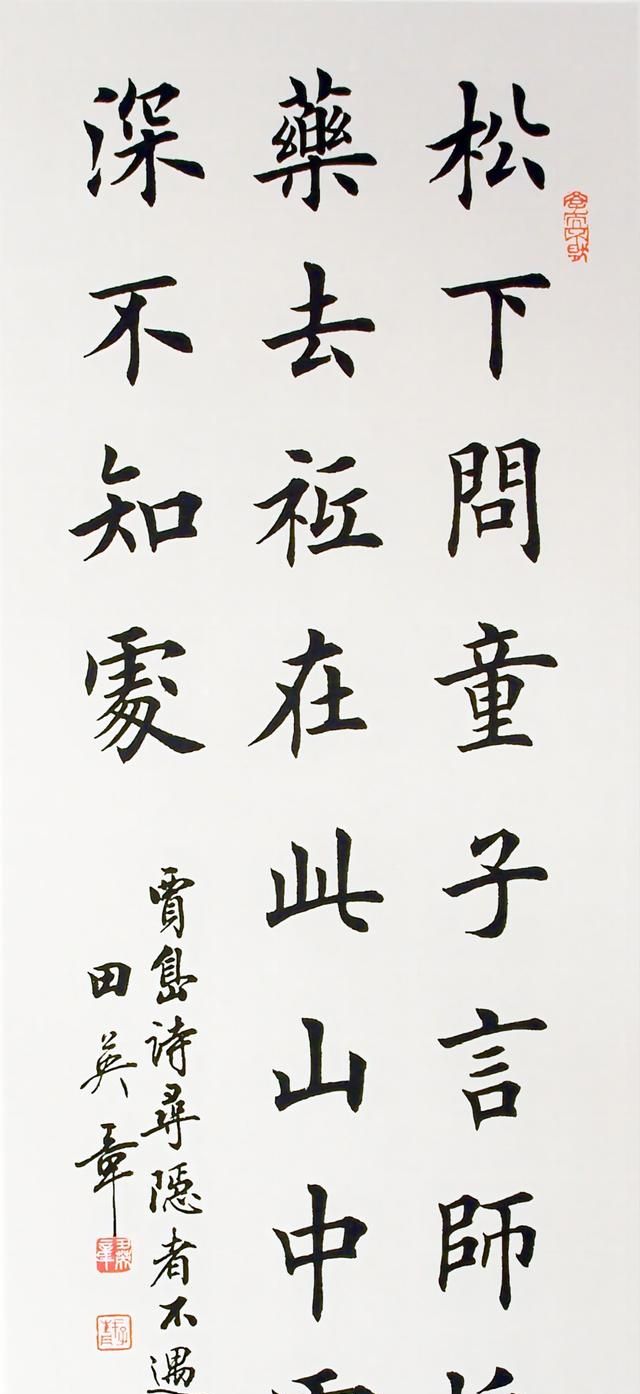 松下問童子言師
藥去秪在此山中
深不知處
賈島詩尋隱者不遇
田英章